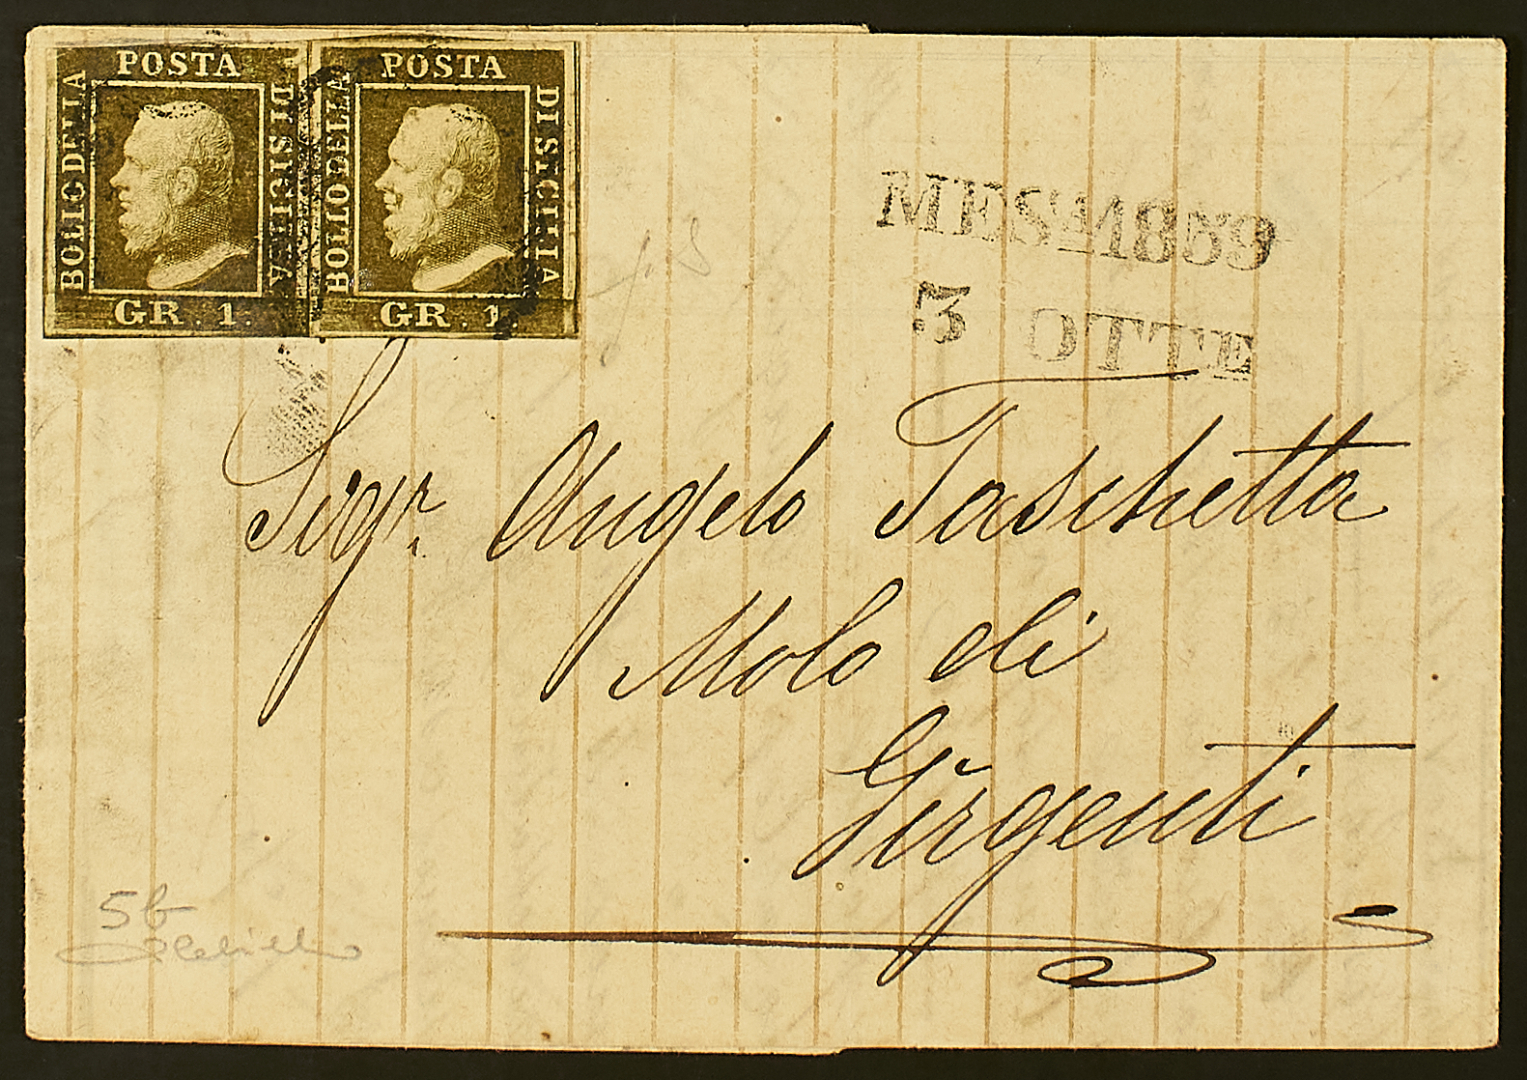 POSTA
BOLLO DELLA
DI SICILIA
GR. 1.
POSTA
BOLLO DELLA
DI SICILIA
GR. 1.
MESNA 1859
3 OTTE
Sigr. Angelo Taschetta
Molo di
Girgenti
5b